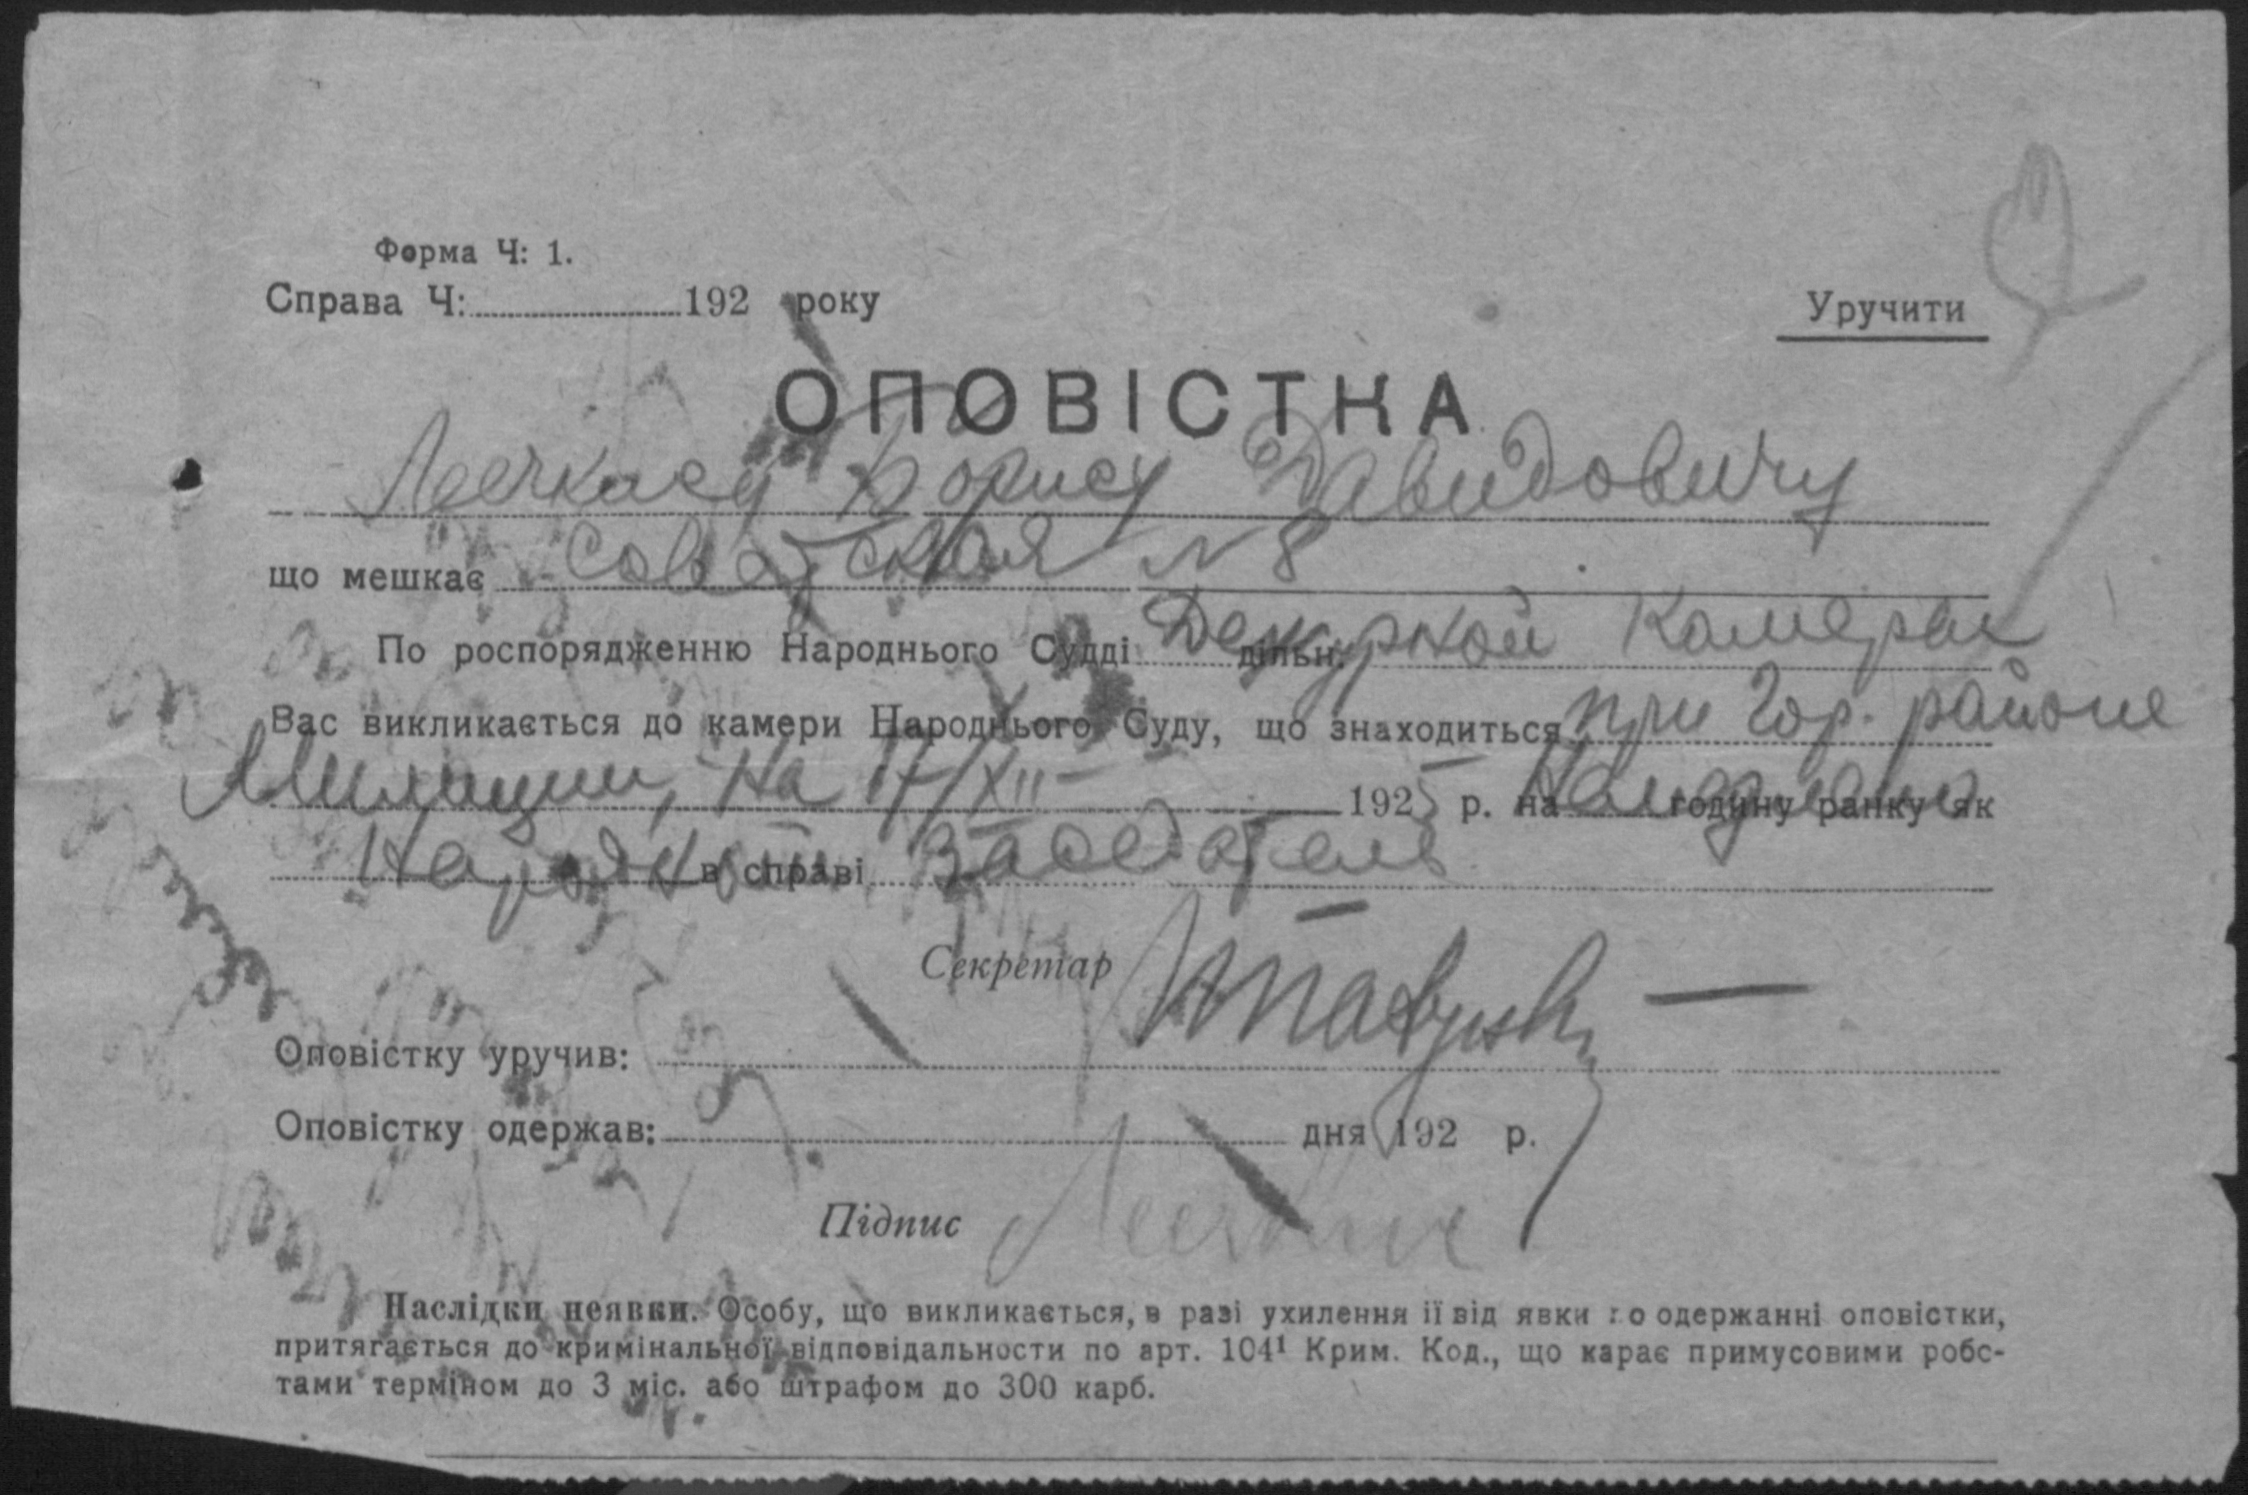 Форма Ч: 1.
Справа Ч: 192 року
Уручити
ОПОВІСТКА
Борису Давидовичу
що мешкає Советская N 8
По роспорядженню Народнього Судді дільн. Дежурной Камеры
Вас викликається до камери Народнього Суду, що знаходиться при Гор. районе
Милиции, на 17/XII 1925 р. на годину ранку як
Народной в справі Заседатель
Секретар
Оповістку уручив:
Оповістку одержав: дня 192 р.
Підпис
Наслідки неявки. Особу, що викликається, в разі ухилення ії від явки по одержанні оповістки,
притягається до кримінальної відповідальности по арт. 104¹ Крим. Код., що карає примусовими робо-
тами терміном до 3 міс. або штрафом до 300 карб.